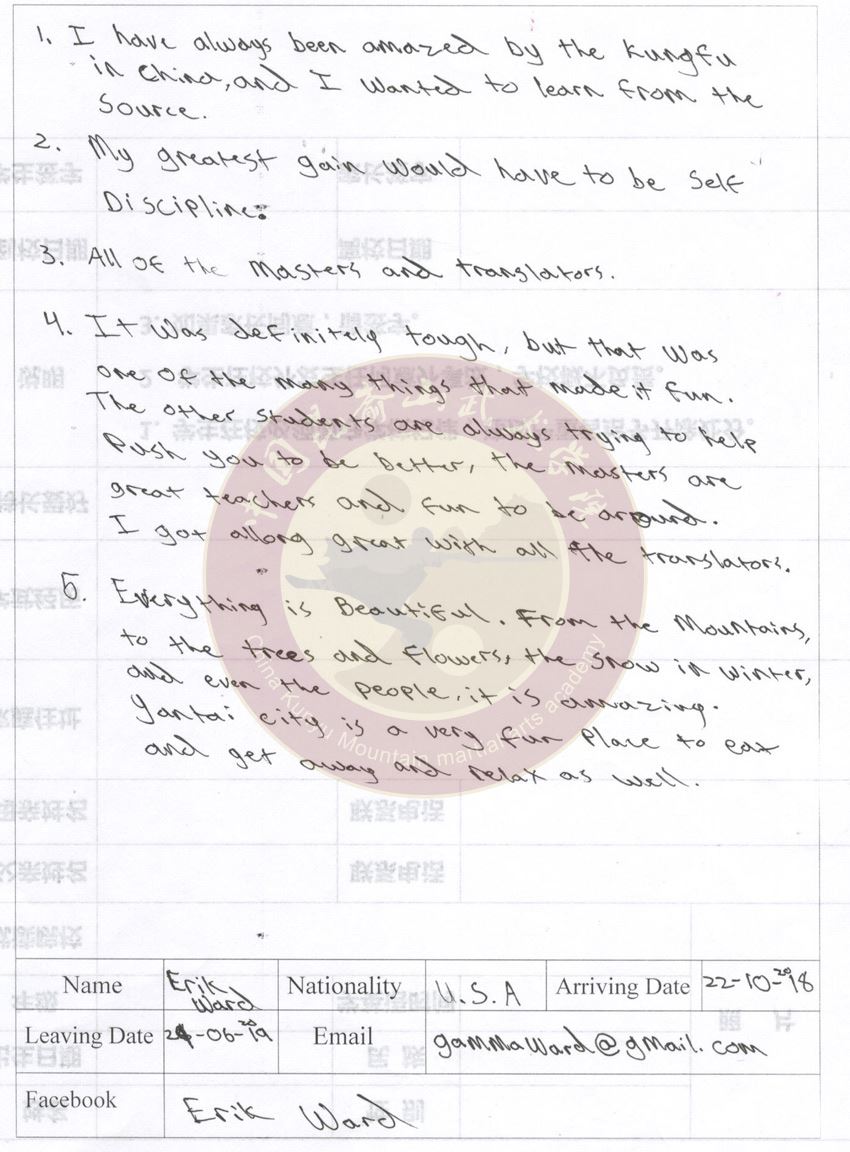 1. I have always been amazed by the Kungfu
in China, and I wanted to learn from the
Source.
2. My greatest gain would have to be Self
Discipline.
3. All of the Masters and translators.
4. It was definitely tough, but that was
one of the many things that made it fun.
The other students are always trying to help
push you to be better, the masters are
great teachers and fun to be around.
I got allong great with all the translators.
5. Everything is Beautiful. From the Mountains,
to the trees and flowers, the snow in winter,
and even the people, it is amazing.
Yantai city is a very fun place to eat
and get away and relax as well.
China Kunyu Mountain martial arts academy
Name Erik Ward Nationality U.S.A Arriving Date 22-10-2018
Leaving Date -06-2019 Email gammaward@gmail.com
Facebook Erik Ward